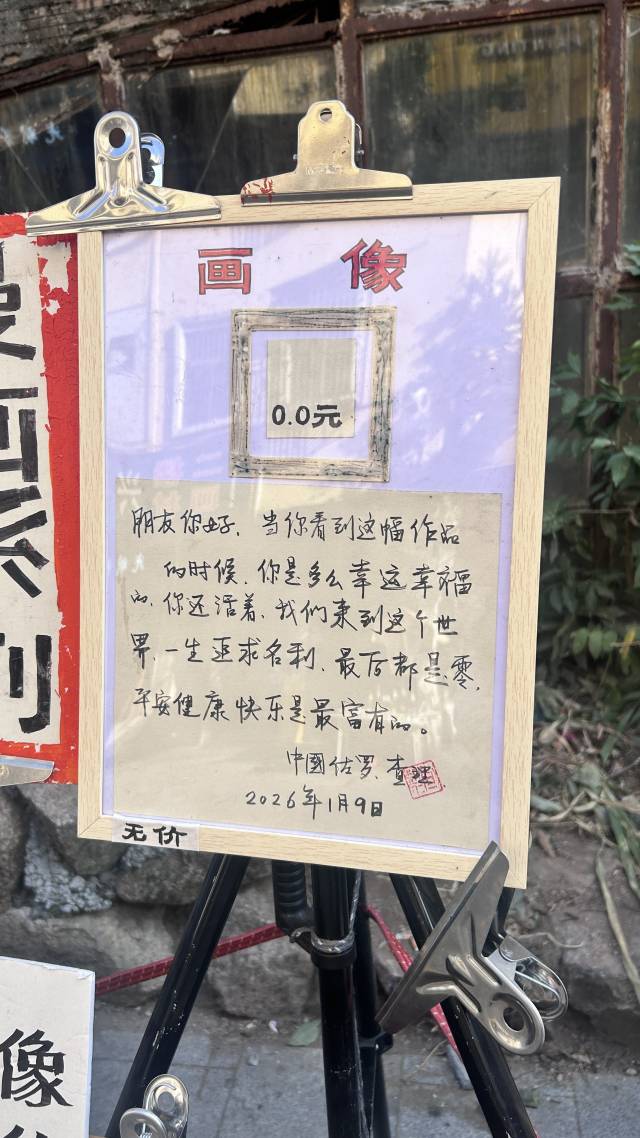 画像
0.0元
朋友你好,当你看到这幅作品
的时候,你是多么幸运幸福
的,你还活着,我们来到这个世
界,一生追求名利,最后都是零,
平安健康快乐是最富有的。
中國佐罗、查理
2026年1月9日
无价
像